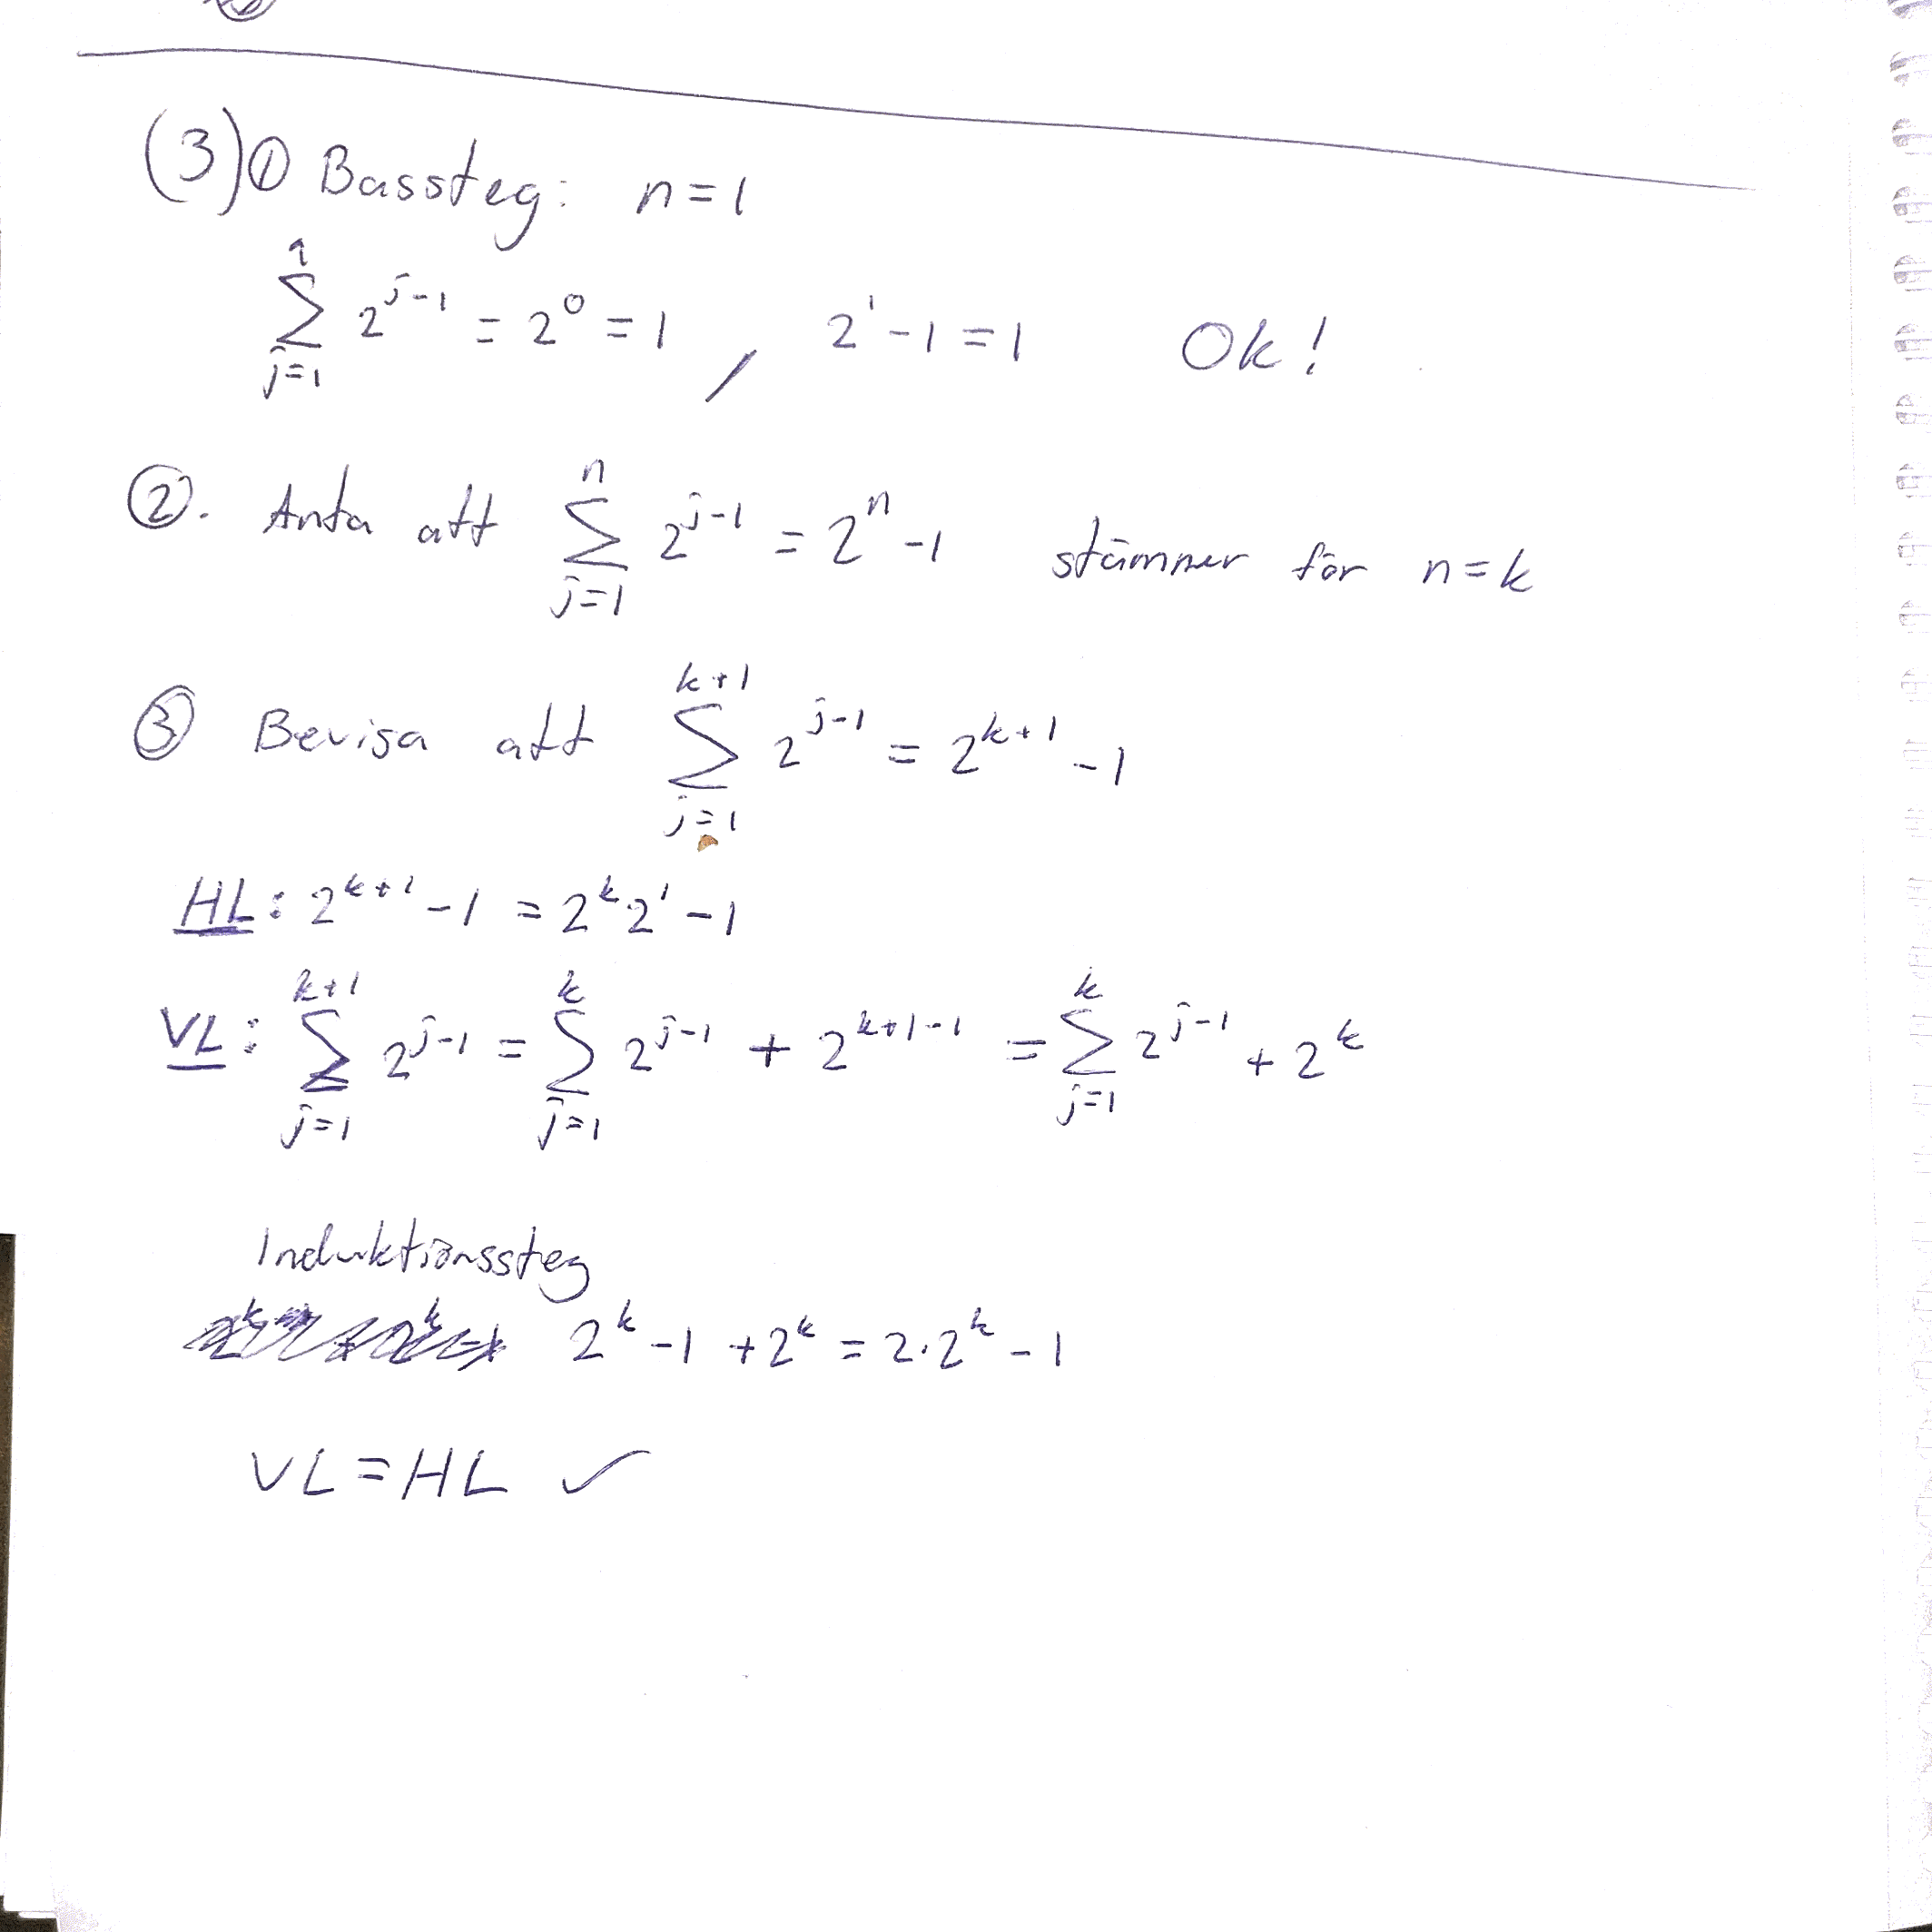 (3) ① Bassteg: n=1
∑_{j=1}^{1} 2^{j-1} = 2^0 = 1 , 2^1 - 1 = 1 Ok!
②. Anta att ∑_{j=1}^{n} 2^{j-1} = 2^n - 1 stämmer för n=k
③ Bevisa att ∑_{j=1}^{k+1} 2^{j-1} = 2^{k+1} - 1
HL: 2^{k+1} - 1 = 2^k 2^1 - 1
VL: ∑_{j=1}^{k+1} 2^{j-1} = ∑_{j=1}^{k} 2^{j-1} + 2^{k+1-1} = ∑_{j=1}^{k} 2^{j-1} + 2^k
Induktionssteg
2^k - 1 + 2^k = 2·2^k - 1
VL = HL ✓